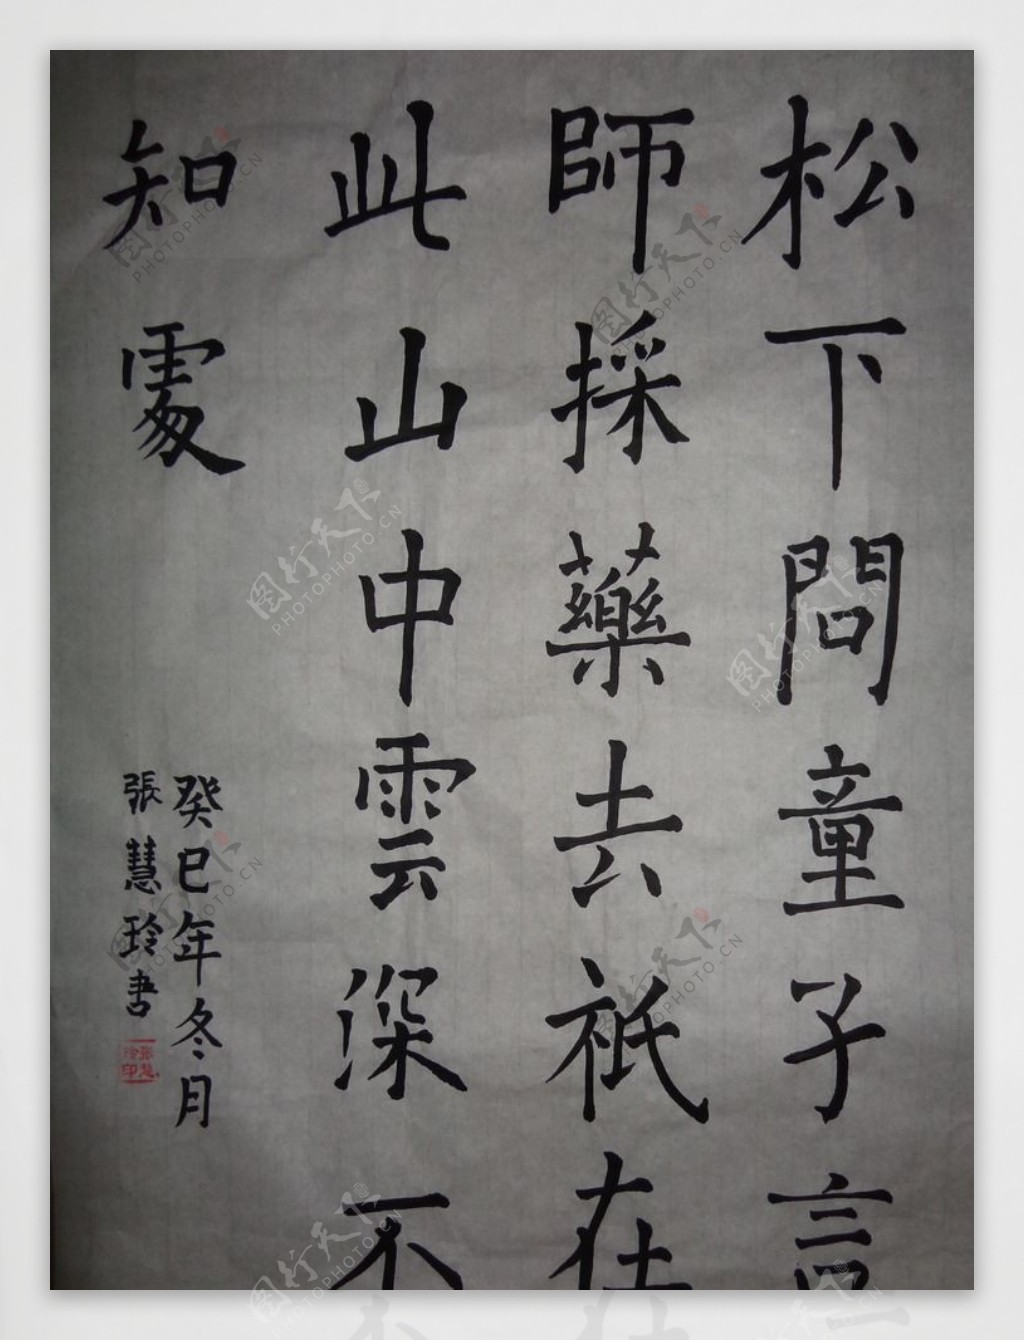 松下問童子言
師採藥去祇在
此山中雲深不
知處
癸巳年冬月
張慧玲書
張慧玲印
图行天下
PHOTOPHOTO.CN
图行天下
PHOTOPHOTO.CN
图行天下
PHOTOPHOTO.CN
图行天下
PHOTOPHOTO.CN
图行天下
PHOTOPHOTO.CN
图行天下
PHOTOPHOTO.CN
图行天下
PHOTOPHOTO.CN
图行天下
PHOTOPHOTO.CN